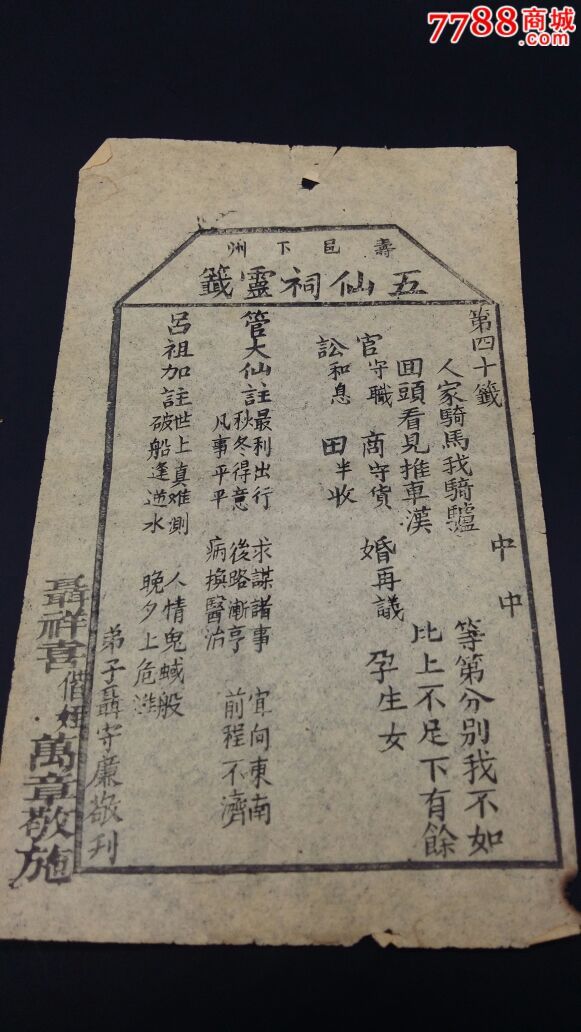 7788商城
.com
壽邑下洲
五仙祠靈籤
第四十籤 中中
人家騎馬我騎驢 等第分別我不如
囬頭看見推車漢 比上不足下有餘
官守職 商守貨 婚再議 孕生女
訟和息 田半收
管大仙註 最利出行 求謀諸事 宜向東南
秋冬得意 後路漸亨 前程不濟
凡事平平 病換醫治
呂祖加註 世上真难測 人情鬼蜮般
破船逢逆水 晚夕上危灘
弟子聶守廉敬刊
聶祥 偕姪 萬章敬施